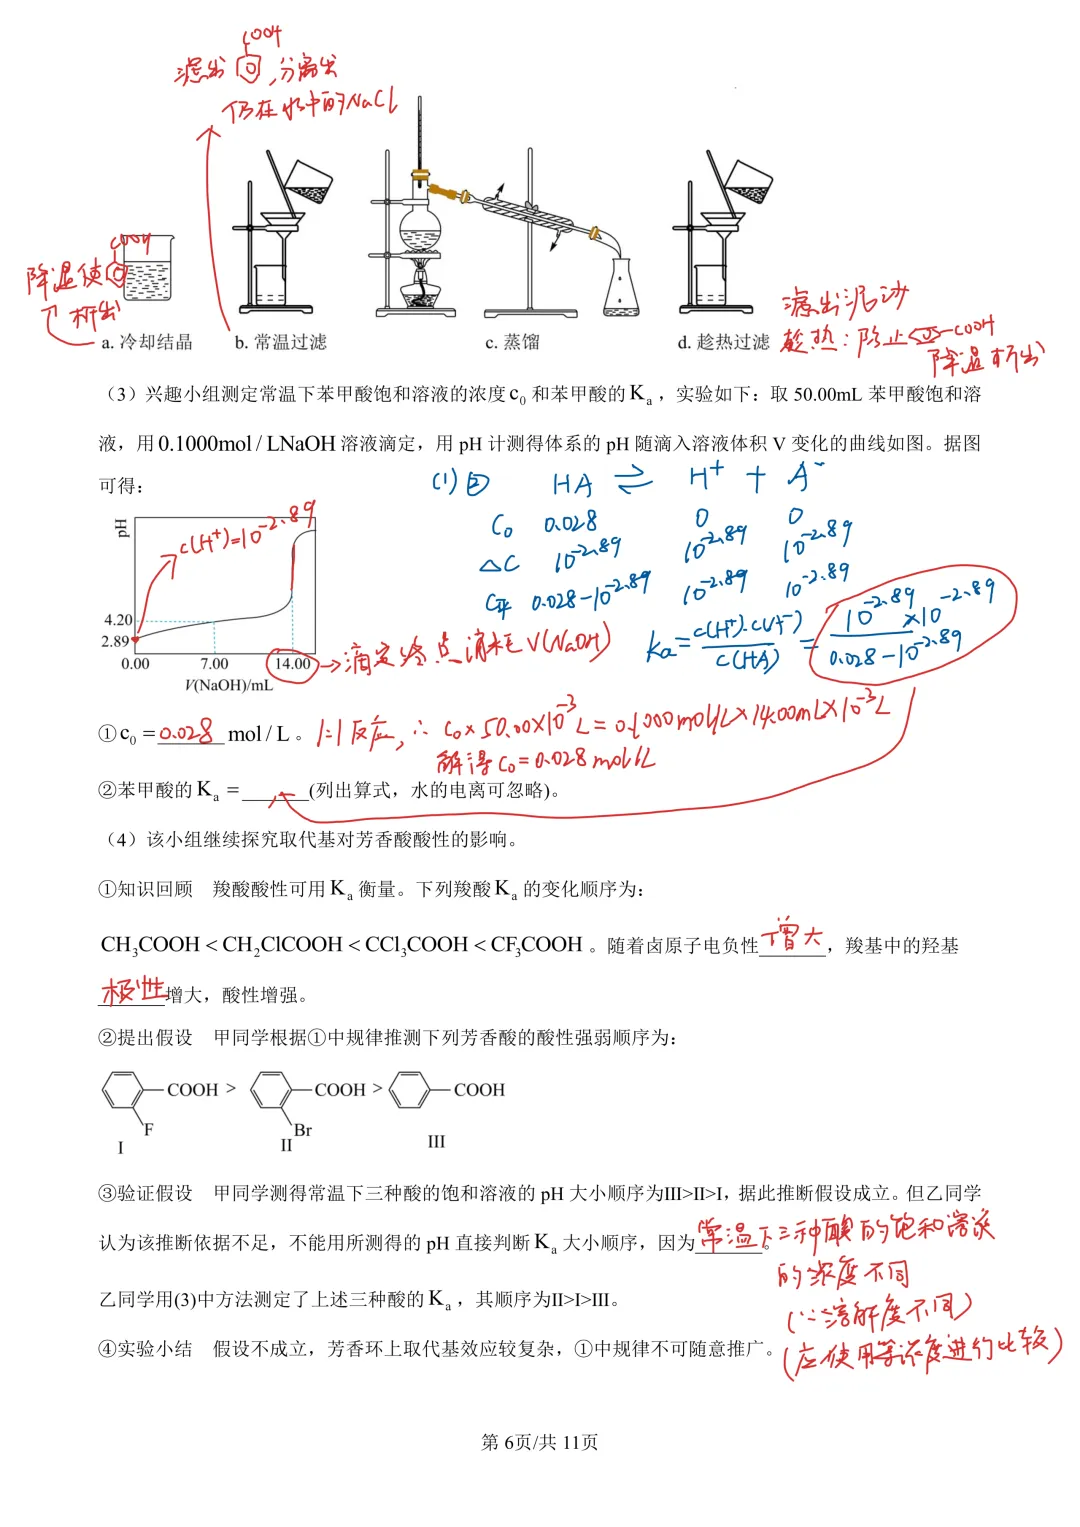 COOH
滤出 ,分离出
仍在水中的NaCl
COOH
降温使
析出
a. 冷却结晶
b. 常温过滤
c. 蒸馏
d. 趁热过滤
滤出泥沙
趁热:防止 -COOH
降温析出
（3）兴趣小组测定常温下苯甲酸饱和溶液的浓度c₀和苯甲酸的Kₐ，实验如下：取 50.00mL 苯甲酸饱和溶
液，用0.1000mol / LNaOH溶液滴定，用 pH 计测得体系的 pH 随滴入溶液体积 V 变化的曲线如图。据图
可得：
(1)② HA ⇌ H⁺ + A⁻
C₀ 0.028 0 0
△C 10^-2.89 10^-2.89 10^-2.89
C平 0.028-10^-2.89 10^-2.89 10^-2.89
Ka = c(H⁺)·c(A⁻) / c(HA) = 10^-2.89 × 10^-2.89 / 0.028-10^-2.89
pH
c(H⁺)=10^-2.89
4.20
2.89
0.00 7.00 14.00
V(NaOH)/mL
→滴定终点消耗V(NaOH)
①c₀ = 0.028 mol / L 。 1:1反应, ∴ C₀×50.00×10^-3 L=0.1000mol/L×14.00mL×10^-3 L
解得C₀=0.028mol/L
②苯甲酸的Kₐ =______(列出算式，水的电离可忽略)。
（4）该小组继续探究取代基对芳香酸酸性的影响。
①知识回顾 羧酸酸性可用Kₐ衡量。下列羧酸Kₐ的变化顺序为：
CH₃COOH < CH₂ClCOOH < CCl₃COOH < CF₃COOH 。随着卤原子电负性 增大 ，羧基中的羟基
极性 增大，酸性增强。
②提出假设 甲同学根据①中规律推测下列芳香酸的酸性强弱顺序为：
COOH > COOH > COOH
F Br
I II III
③验证假设 甲同学测得常温下三种酸的饱和溶液的 pH 大小顺序为III>II>I，据此推断假设成立。但乙同学
认为该推断依据不足，不能用所测得的 pH 直接判断Kₐ大小顺序，因为 常温下三种酸的饱和溶液 。
的浓度不同
(∵溶解度不同)
乙同学用(3)中方法测定了上述三种酸的Kₐ，其顺序为II>I>III。
④实验小结 假设不成立，芳香环上取代基效应较复杂，①中规律不可随意推广。
(应使用等浓度进行比较)
第 6页/共 11页